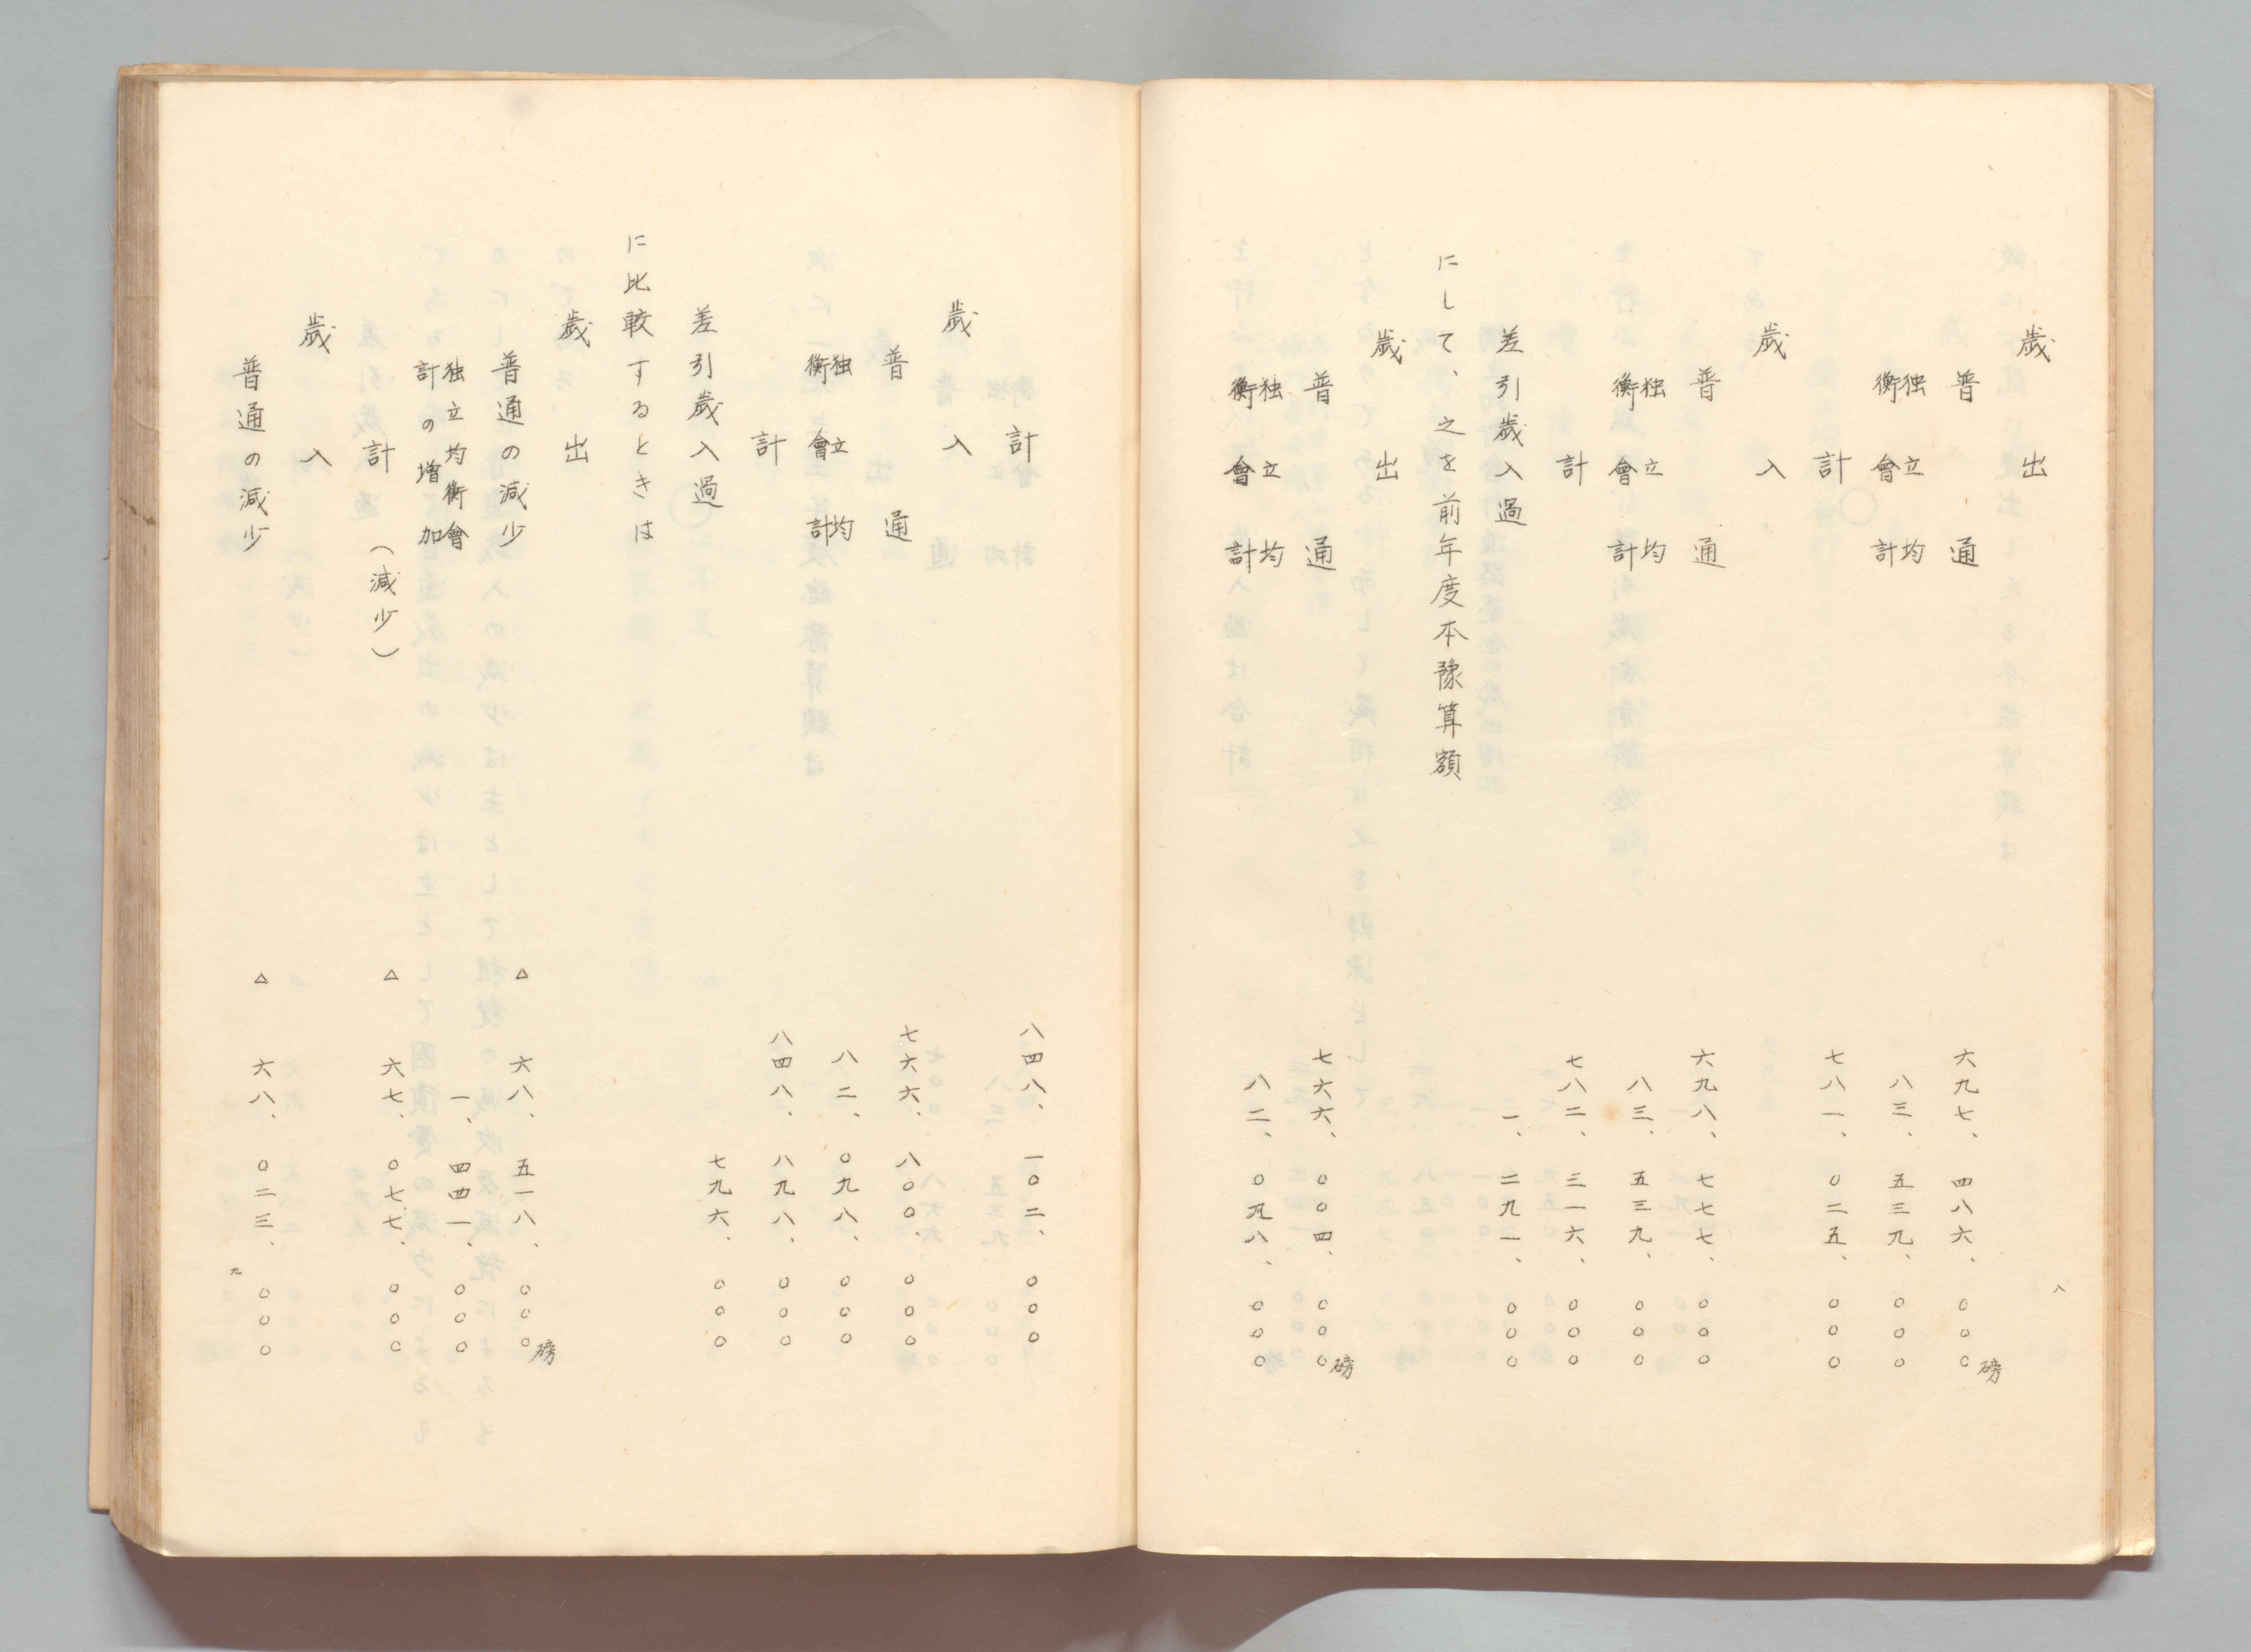 歳出
普通 六九七、四八六、〇〇〇磅
独立均衡會計 八三、五三九、〇〇〇
計 七八一、〇二五、〇〇〇
歳入
普通 六九八、七七七、〇〇〇
独立均衡會計 八三、五三九、〇〇〇
計 七八二、三一六、〇〇〇
差引歳入過 一、二九一、〇〇〇
にして、之を前年度本豫算額
歳出
普通 七六六、〇〇四、〇〇〇磅
独立均衡會計 八二、〇九八、〇〇〇
八
計 八四八、一〇二、〇〇〇
歳入
普通 七六六、八〇〇、〇〇〇
独立均衡會計 八二、〇九八、〇〇〇
計 八四八、八九八、〇〇〇
差引歳入過 七九六、〇〇〇
に比較するときは
歳出
普通の減少 △ 六八、五一八、〇〇〇磅
独立均衡會計の増加 一、四四一、〇〇〇
計(減少) △ 六七、〇七七、〇〇〇
歳入
普通の減少 △ 六八、〇二三、〇〇〇
九